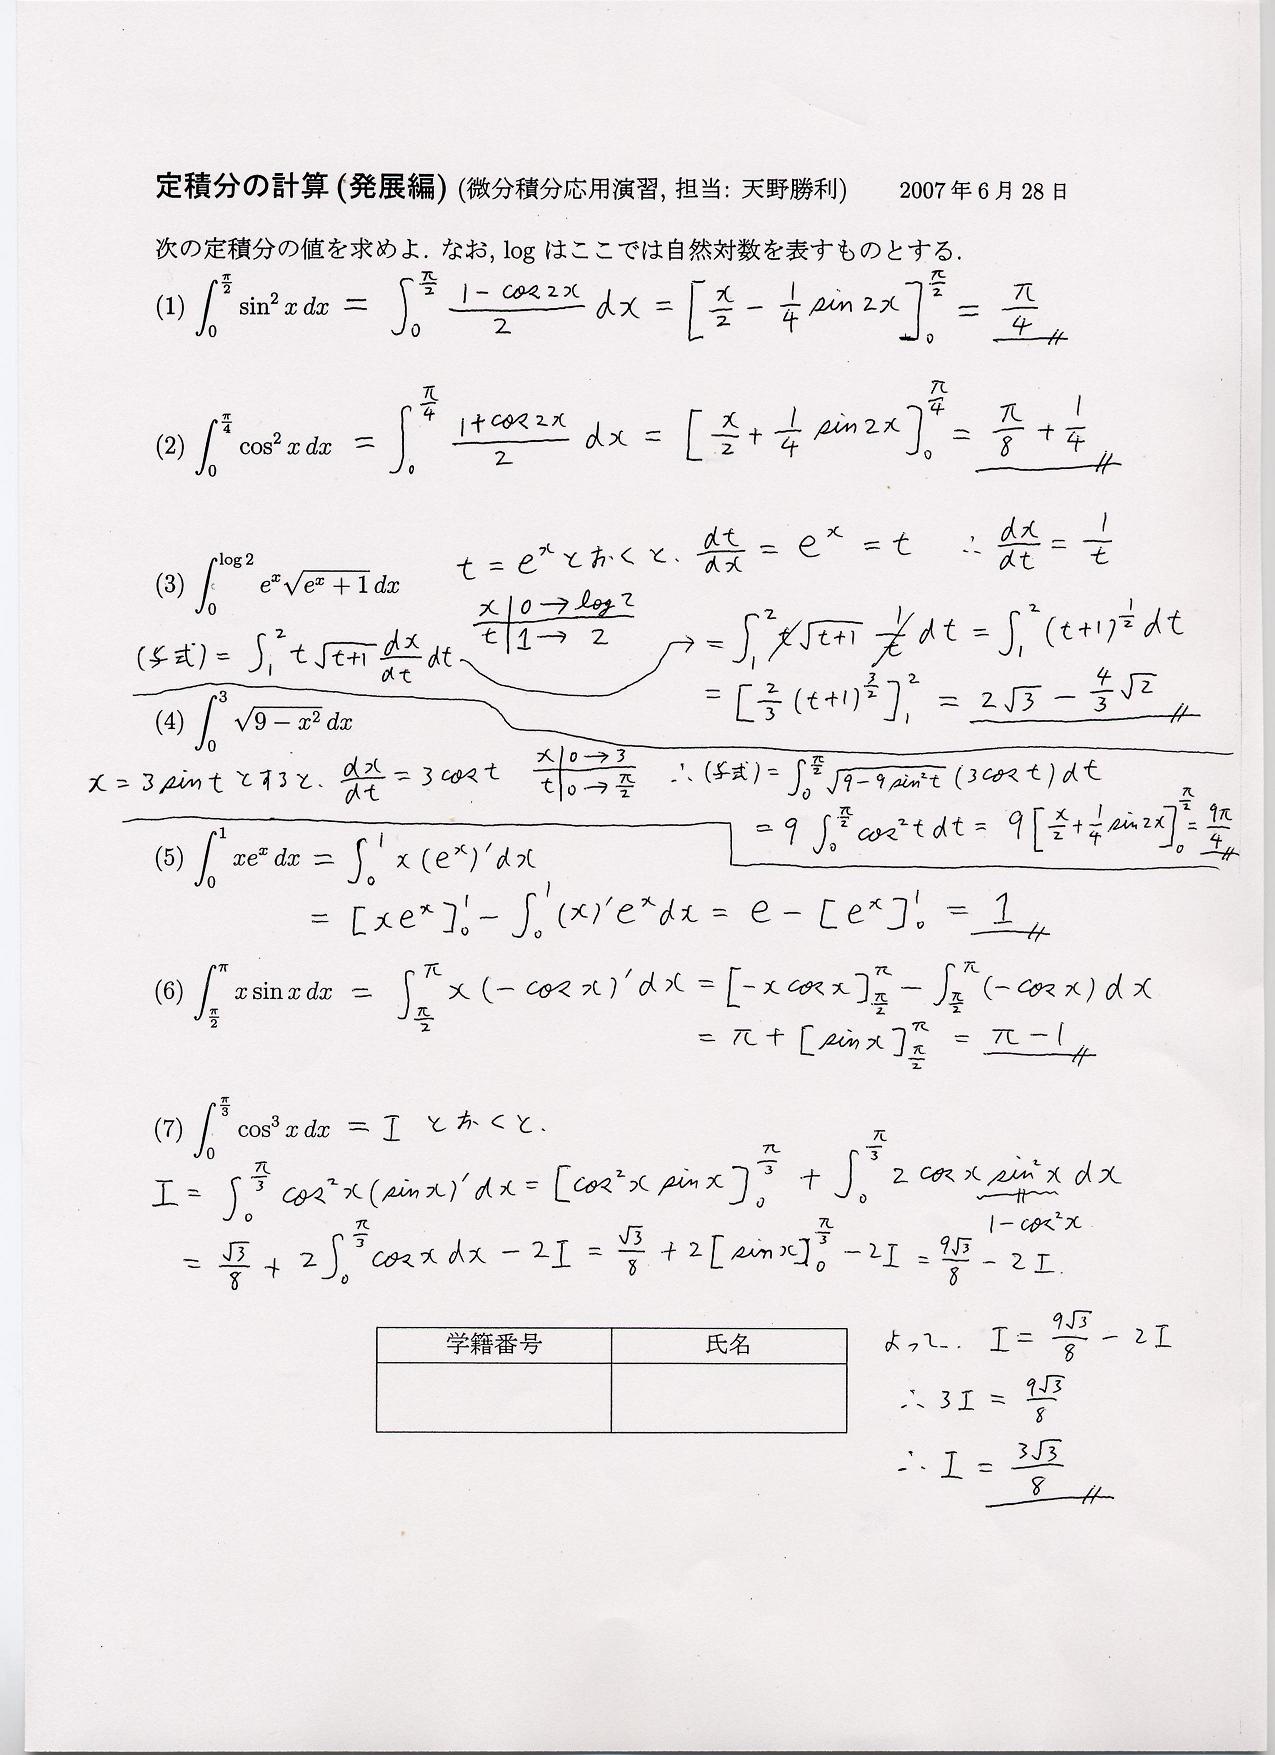 定積分の計算 (発展編) (微分積分応用演習, 担当: 天野勝利) 2007 年 6 月 28 日
次の定積分の値を求めよ. なお, log はここでは自然対数を表すものとする.
(1) ∫_0^{π/2} sin² x dx = ∫_0^{π/2} (1 − cos 2x)/2 dx = [x/2 − 1/4 sin 2x]_0^{π/2} = π/4
(2) ∫_0^{π/4} cos² x dx = ∫_0^{π/4} (1 + cos 2x)/2 dx = [x/2 + 1/4 sin 2x]_0^{π/4} = π/8 + 1/4
(3) ∫_0^{log 2} e^x √(e^x + 1) dx t = e^x とおくと、 dt/dx = e^x = t ∴ dx/dt = 1/t
x | 0 → log 2
t | 1 → 2
(与式) = ∫_1^2 t √(t+1) dx/dt dt → = ∫_1^2 t √(t+1) 1/t dt = ∫_1^2 (t+1)^{1/2} dt
= [2/3 (t+1)^{3/2}]_1^2 = 2√3 − 4/3 √2
(4) ∫_0^3 √(9 − x²) dx
x = 3 sin t とすると、 dx/dt = 3 cos t x | 0 → 3 ∴ (与式) = ∫_0^{π/2} √(9 − 9 sin² t) (3 cos t) dt
t | 0 → π/2
= 9 ∫_0^{π/2} cos² t dt = 9 [x/2 + 1/4 sin 2x]_0^{π/2} = 9π/4
(5) ∫_0^1 xe^x dx = ∫_0^1 x (e^x)′ dx
= [xe^x]_0^1 − ∫_0^1 (x)′ e^x dx = e − [e^x]_0^1 = 1
(6) ∫_{π/2}^π x sin x dx = ∫_{π/2}^π x (−cos x)′ dx = [−x cos x]_{π/2}^π − ∫_{π/2}^π (−cos x) dx
= π + [sin x]_{π/2}^π = π − 1
(7) ∫_0^{π/3} cos³ x dx = I とおくと、
I = ∫_0^{π/3} cos² x (sin x)′ dx = [cos² x sin x]_0^{π/3} + ∫_0^{π/3} 2 cos x sin² x dx
1 − cos² x
= √3/8 + 2 ∫_0^{π/3} cos x dx − 2I = √3/8 + 2 [sin x]_0^{π/3} − 2I = 9√3/8 − 2I.
学籍番号 氏名
よって、 I = 9√3/8 − 2I
∴ 3I = 9√3/8
∴ I = 3√3/8